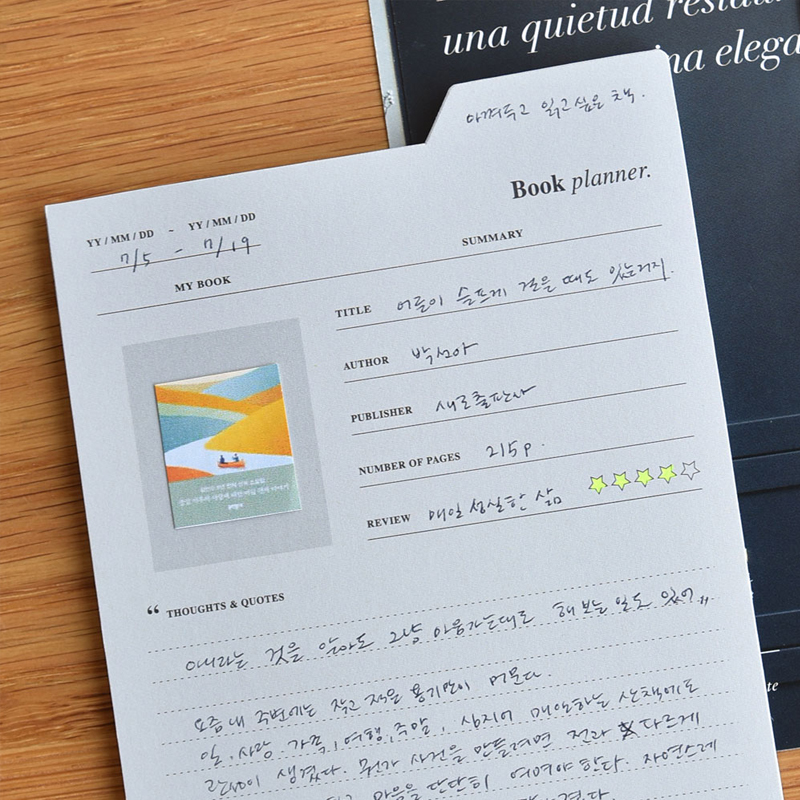 una quietud
elega
아껴두고 읽고 싶은 책.
Book planner.
YY / MM / DD - YY / MM / DD
7/5 - 7/19
MY BOOK
SUMMARY
TITLE 어른이 슬프게 걸을 때도 있는거지.
AUTHOR 박선아
PUBLISHER 새로출판사
NUMBER OF PAGES 215p.
REVIEW 매일 성실한 삶
“ THOUGHTS & QUOTES
아니라는 것을 알아도 그냥 마음가는대로 해 보는 일도 있어"
요즘 내 주변에는 작고 적은 용기만이 머문다.
일, 사랑, 가족, 여행, 주말, 심지어 매일하는 산책에도
생겼다. 뭔가 사건을 만들려면 전과 다르게
마음을 단단히 여며야 한다. 자연스레